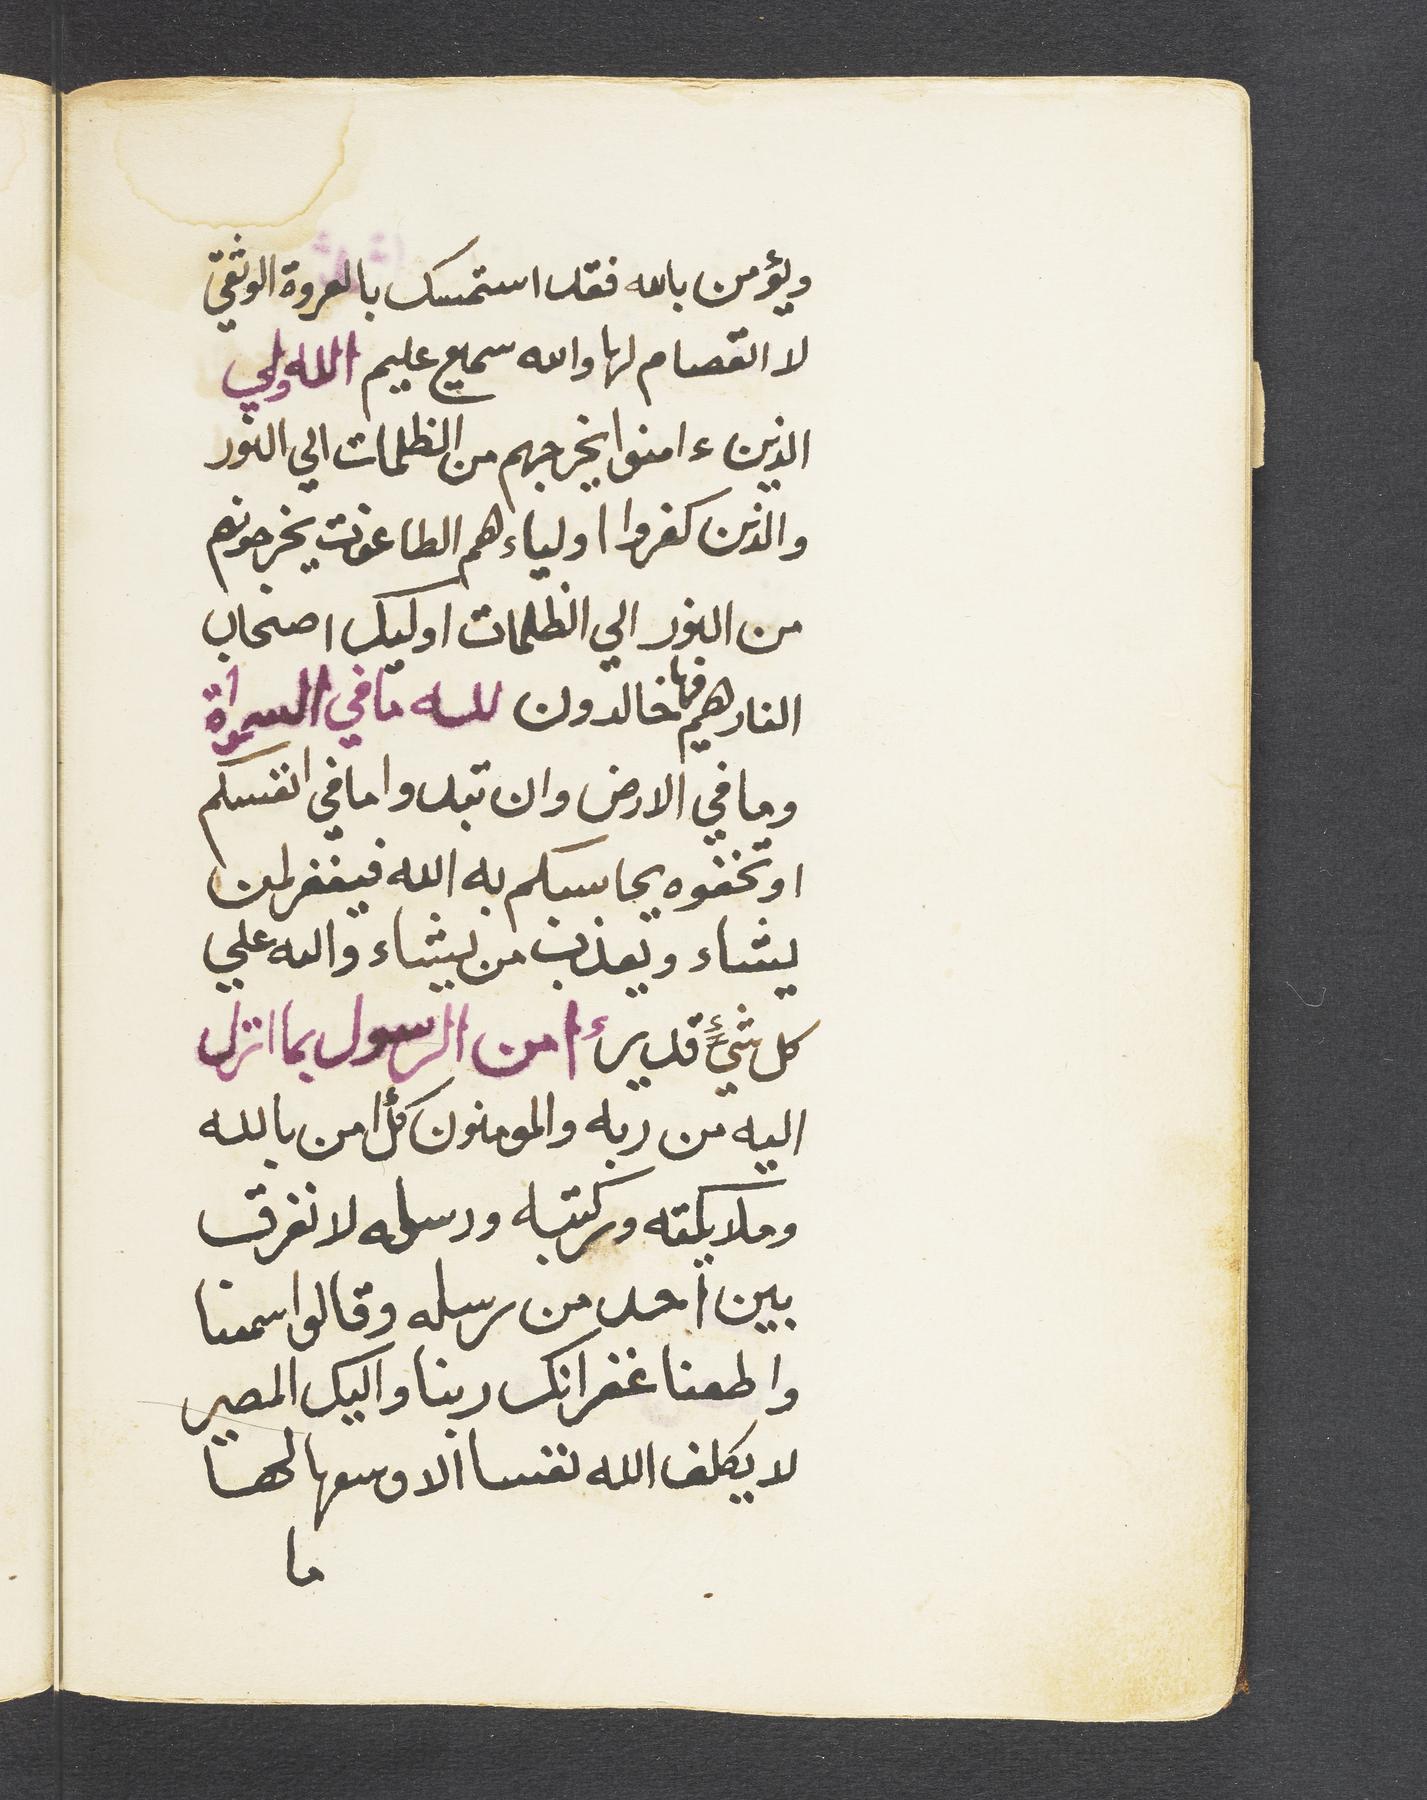 ويؤمن بالله فقد استمسك بالعروة الوثقي
لا انفصام لها والله سميع عليم الله ولي
الذين ءامنوا يخرجهم من الظلمات الي النور
والذين كفروا اولياءهم الطاغوت يخرجونهم
من النور الي الظلمات اوليك اصحاب
النار هم فيها خالدون لله ما في السمواة
وما في الارض وان تبدوا ما في انفسكم
او تخفوه يحاسبكم به الله فيغفر لمن
يشاء ويعذب من يشاء والله علي
كل شيء قدير ءامن الرسول بما انزل
اليه من ربه والمومنون كل امن بالله
وملايكته وكتبه ورسله لا نفرق
بين أحد من رسله وقالوا سمعنا
واطعنا غفرانك ربنا واليك المصير
لا يكلف الله نفسا الا وسعها لها
ما